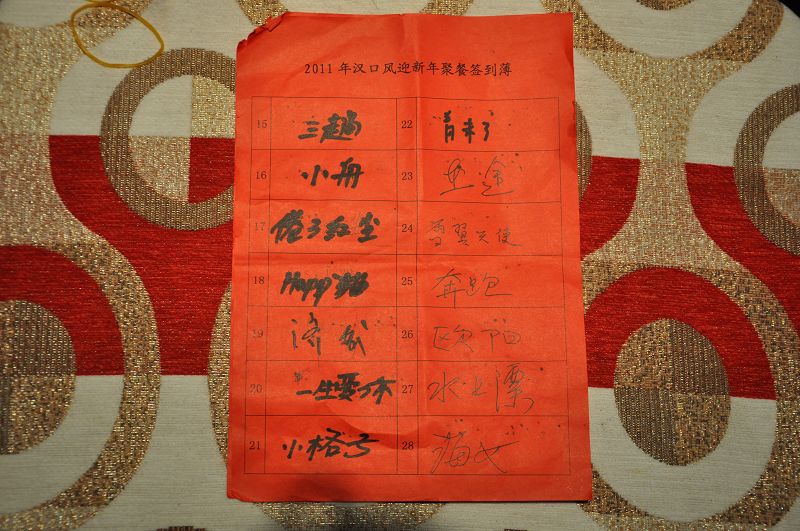 2011年汉口风迎新年聚餐签到薄
15 三趟 22 肖未了
16 小舟 23
17 倦了红尘 24 雪翼天使
18 Happy猫 25 奔跑
19 济城 26 欧阳
20 一生要不 27 水上漂
21 小格子 28 猫女